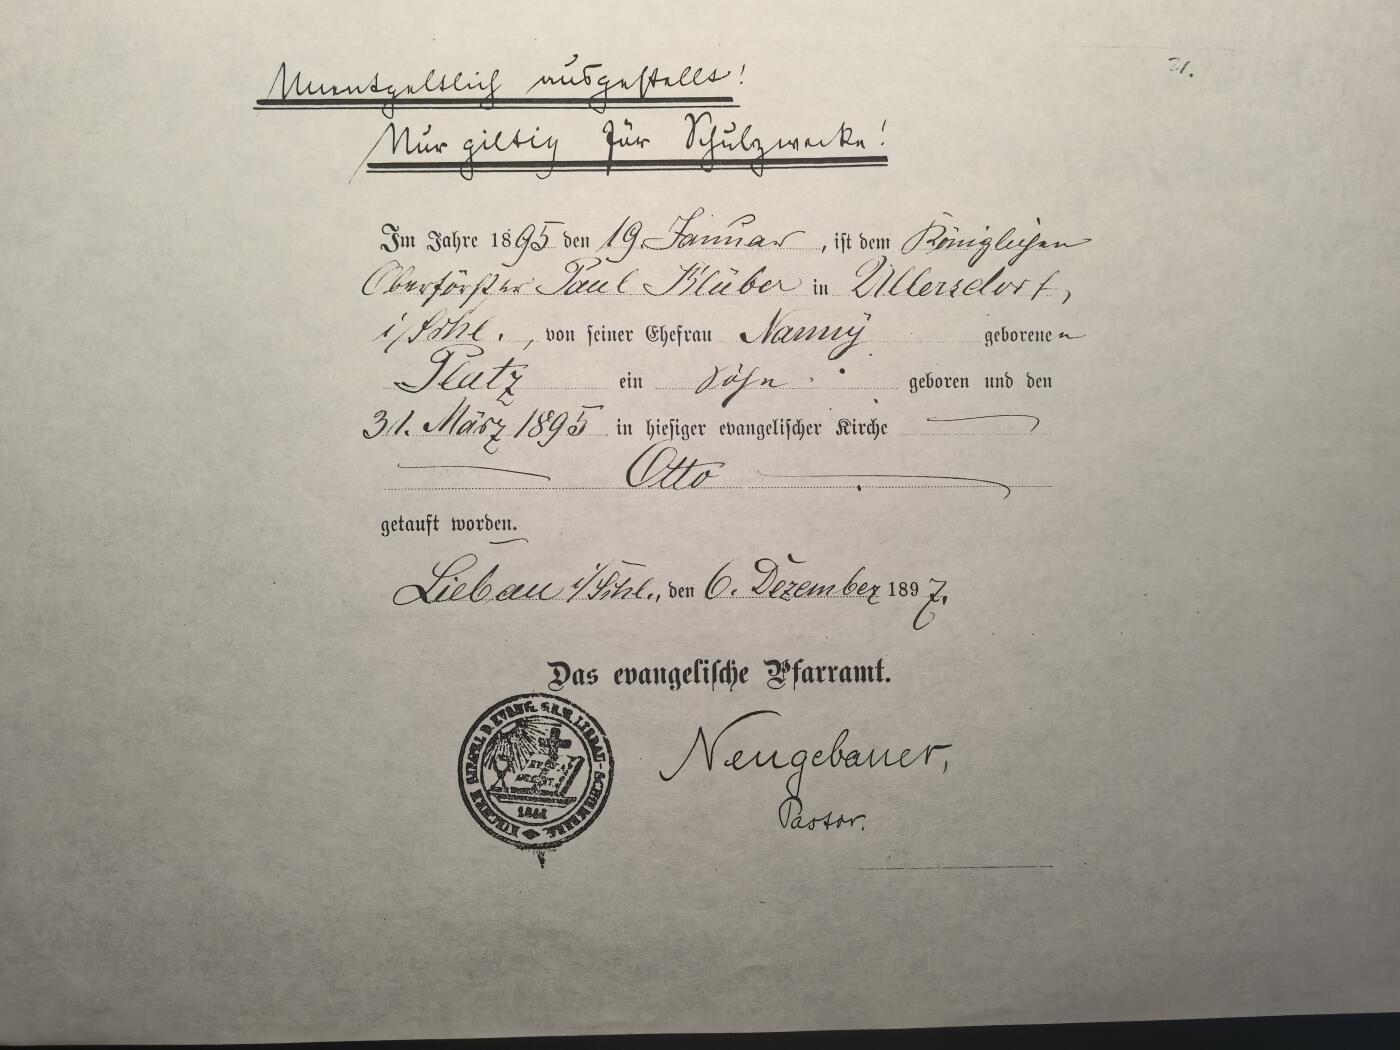 21.
Unentgeltlich ausgestellt!
Nur giltig für Schulzwecke!
Im Jahre 1895 den 19. Januar, ist dem Königlichen
Oberförster Paul Klüber in Ullersdorf,
i/Schl., von seiner Ehefrau Nanny geborenen
Platz ein Sohn geboren und den
31. März 1895 in hiesiger evangelischer Kirche
Otto
getauft worden.
Liebau i/Schl., den 6. Dezember 1897.
Das evangelische Pfarramt.
KIRCHEN SIEGEL D. EVANG. GEM. LIEBAU-SCHÖMBERG
Neugebauer,
Pastor.